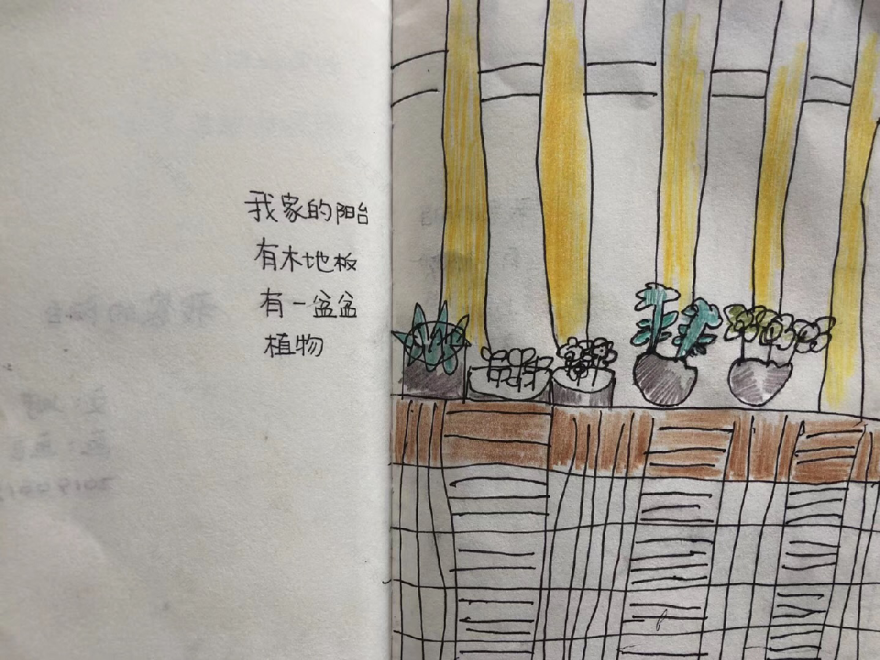 我家的阳台
有木地板
有一盆盆
植物